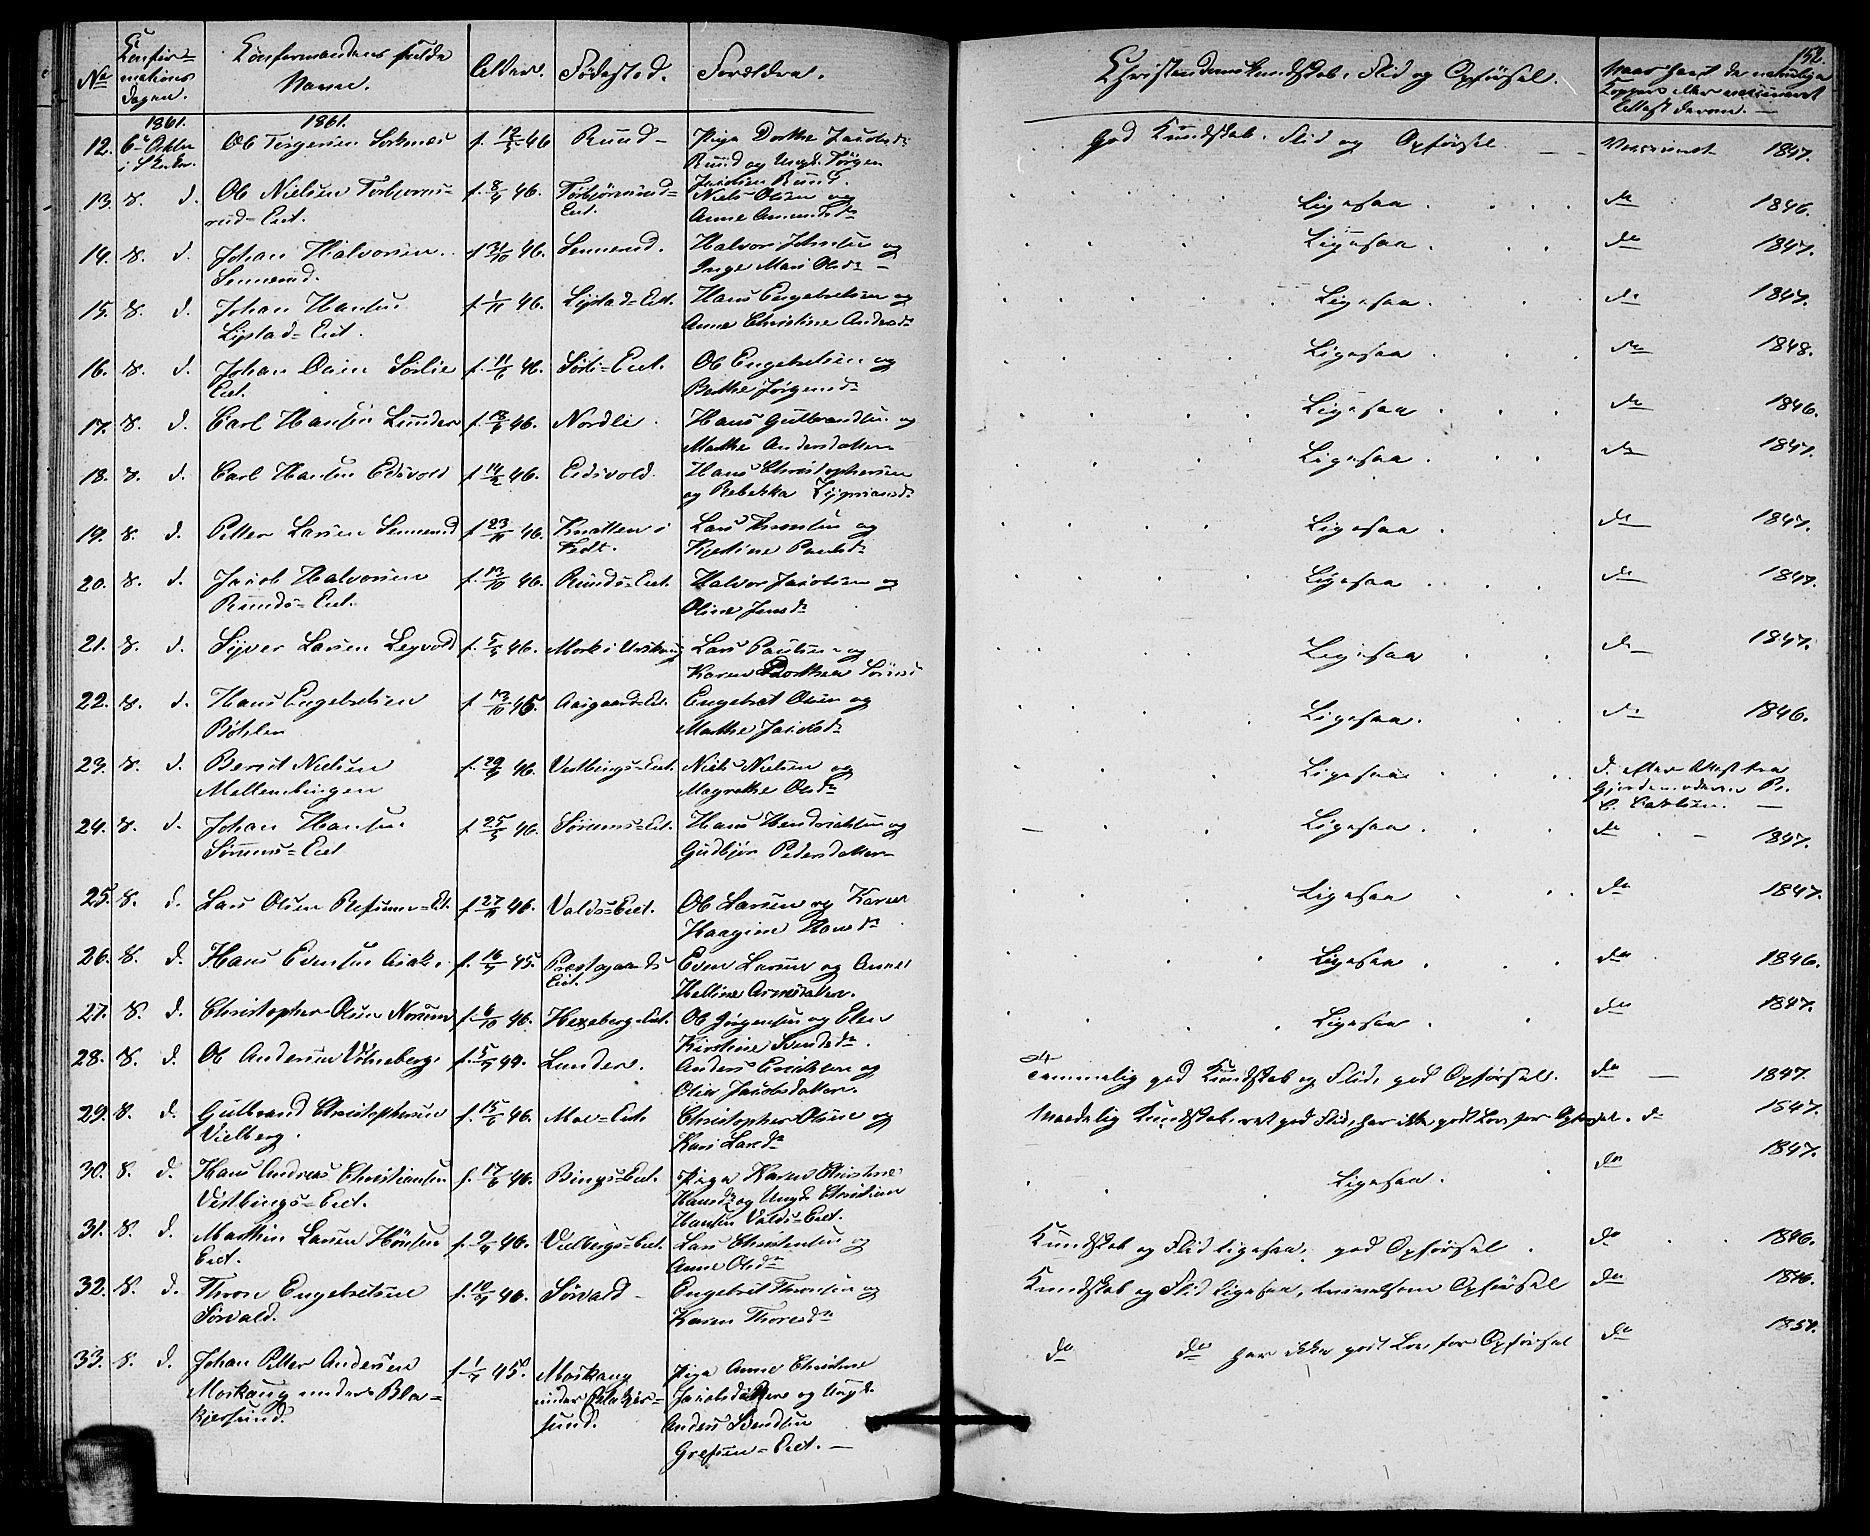 152.
No
Confir=
mations
Dagen.
Confirmandens fulde
Navn.
Alder.
Fødested.
Forældre.
Christendomskundskab, Flid og Opførsel.
Naar havt de naturlige
Kopper eller vaccineret
Attest derom.
1861. 1861.
12. 6te Octbr i Ole Torgersen f. 12/5 46 Ruud Pige Dorthe Jacobsdr God Kundskab, Flid og Opførsel. Vaccineret 1847.
Ruud og Ungk. Torgen
Jacobsen Ruud.
13. s. d. Ole Nielsen Torbjørns= f. 8/4 46. Torbjørnsrud= Niels Olsen og Ligesaa do 1846.
rud=Eiet. Eiet. Anne Amundsdr
14. s. d. Johan Halvorsen f. 31/10 46. Sennerud. Halvor Johnsen og Ligesaa do 1847.
Sennerud. Inge Mari Olsdr
15. s. d. Johan Hansen f. 1/11 46. Lystad=Eiet. Hans Engebretsen og Ligesaa. do 1847.
Lystad=Eiet. Anne Christine Andersdr
16. s. d. Johan Olsen Sørlie f. 11/6 46. Sørli=Eiet. Ole Engebretsen og Ligesaa do 1848.
Eiet. Berthe Jørgensdr
17. s. d. Carl Hansen Lunder f. 18/6 46. Nordli. Hans Gulbrandsen og Ligesaa do 1846.
Marthe Andersdatter
18. s. d. Carl Hansen Eidsvold f. 14/2 46. Eidsvold. Hans Christophersen Ligesaa do 1847.
og Rebekka
19. s. d. Petter Larsen Sennerud f. 23/11 46. Knatten i Lars Thronsen og Ligesaa do 1847.
Fedt. Kjerstine Paulsdr
20. s. d. Jacob Halvorsen f. 13/10 46. Ruuds=Eiet. Halvor Jacobsen og Ligesaa do 1847.
Ruuds=Eiet. Oline Jensdr
21. s. d. Syver Larsen Legvold f. 5/5 46. Mork i Urskoug Lars Paulsen og Ligesaa do 1847.
Karen Dorthea
22. s. d. Hans Engebretsen f. 13/10 45. Aasgaard=Eiet. Engebret Olsen og Ligesaa. do 1846.
Bøhler Marthe Jacobsdr
23. s. d. Berent Nielsen f. 29/8 46. Vestbings=Eiet. Niels Nielsen og Ligesaa d. efter Attest fra
Mellembingen Magrethe Olsdr Gjordemoderen
24. s. d. Johan Hansen f. 25/5 46. Sørums=Eiet. Hans Hendriksen og Ligesaa. do 1847.
Sørums=Eiet Gudbjør Pedersdatter
25. s. d. Lars Olsen Refsum=Et. f. 27/11 46. Valds=Eiet. Ole Larsen og Karen Ligesaa do 1847.
Haagine Hansdr
26. s. d. Hans Evensen Asak. f. 16/4 45. Præstegaards Even Larsen og Anne Ligesaa do 1846.
Eiet. Helline Arnesdatter.
27. s. d. Christopher Olsen Norum f. 6/10 46. Hexeberg=Eiet. Ole Jørgensen og Elen Ligesaa do 1847.
Kirstine Svendsdr.
28. s. d. Ole Andersen Vølneberg f. 5/5 44. Lunder. Anders Erichsen og Temmelig god Kundskab og Flid, god Opførsel. do 1847.
Olia Jacobsdatter.
29. s. d. Gulbrand Christophersen f. 15/6 46. Moe=Eiet Christopher Olsen og Maadelig Kundskab, ret god Flid, har ikke godt Lov for Opførsel. do 1847.
Vielberg. Kari Larsdr
30. s. d. Hans Andreas Christiansen f. 17/6 46. Bings=Eiet. Pige Karen Christine Ligesaa. do 1847.
Vestbings=Eiet. Hansdr og Ungk. Christian
Hansen Valds=Eiet.
31. s. d. Mathis Larsen f. 9/4 46. Vielbergs=Eiet. Lars Christensen og Kundskab og Flid ligesaa, god Opførsel. do 1846.
Eiet. Anne Olsdr
32. s. d. Thron Engebretsen f. 10/4 46. Sørvald Engebret Thronsen og Kundskab og Flid ligesaa, tvivelsom Opførsel do 1846.
Sørvald. Karen Thoresdr
33. s. d. Johan Petter Andersen f. 1/4 45. Morkoug Pige Anne Christine do do har ikke godt Lov for Opførsel do
Morkoug under Bla= under Blakjer= Jacobsdatter og Ungk.
kjersund. sund. Anders Svendsen
Grefsrud=Eiet.